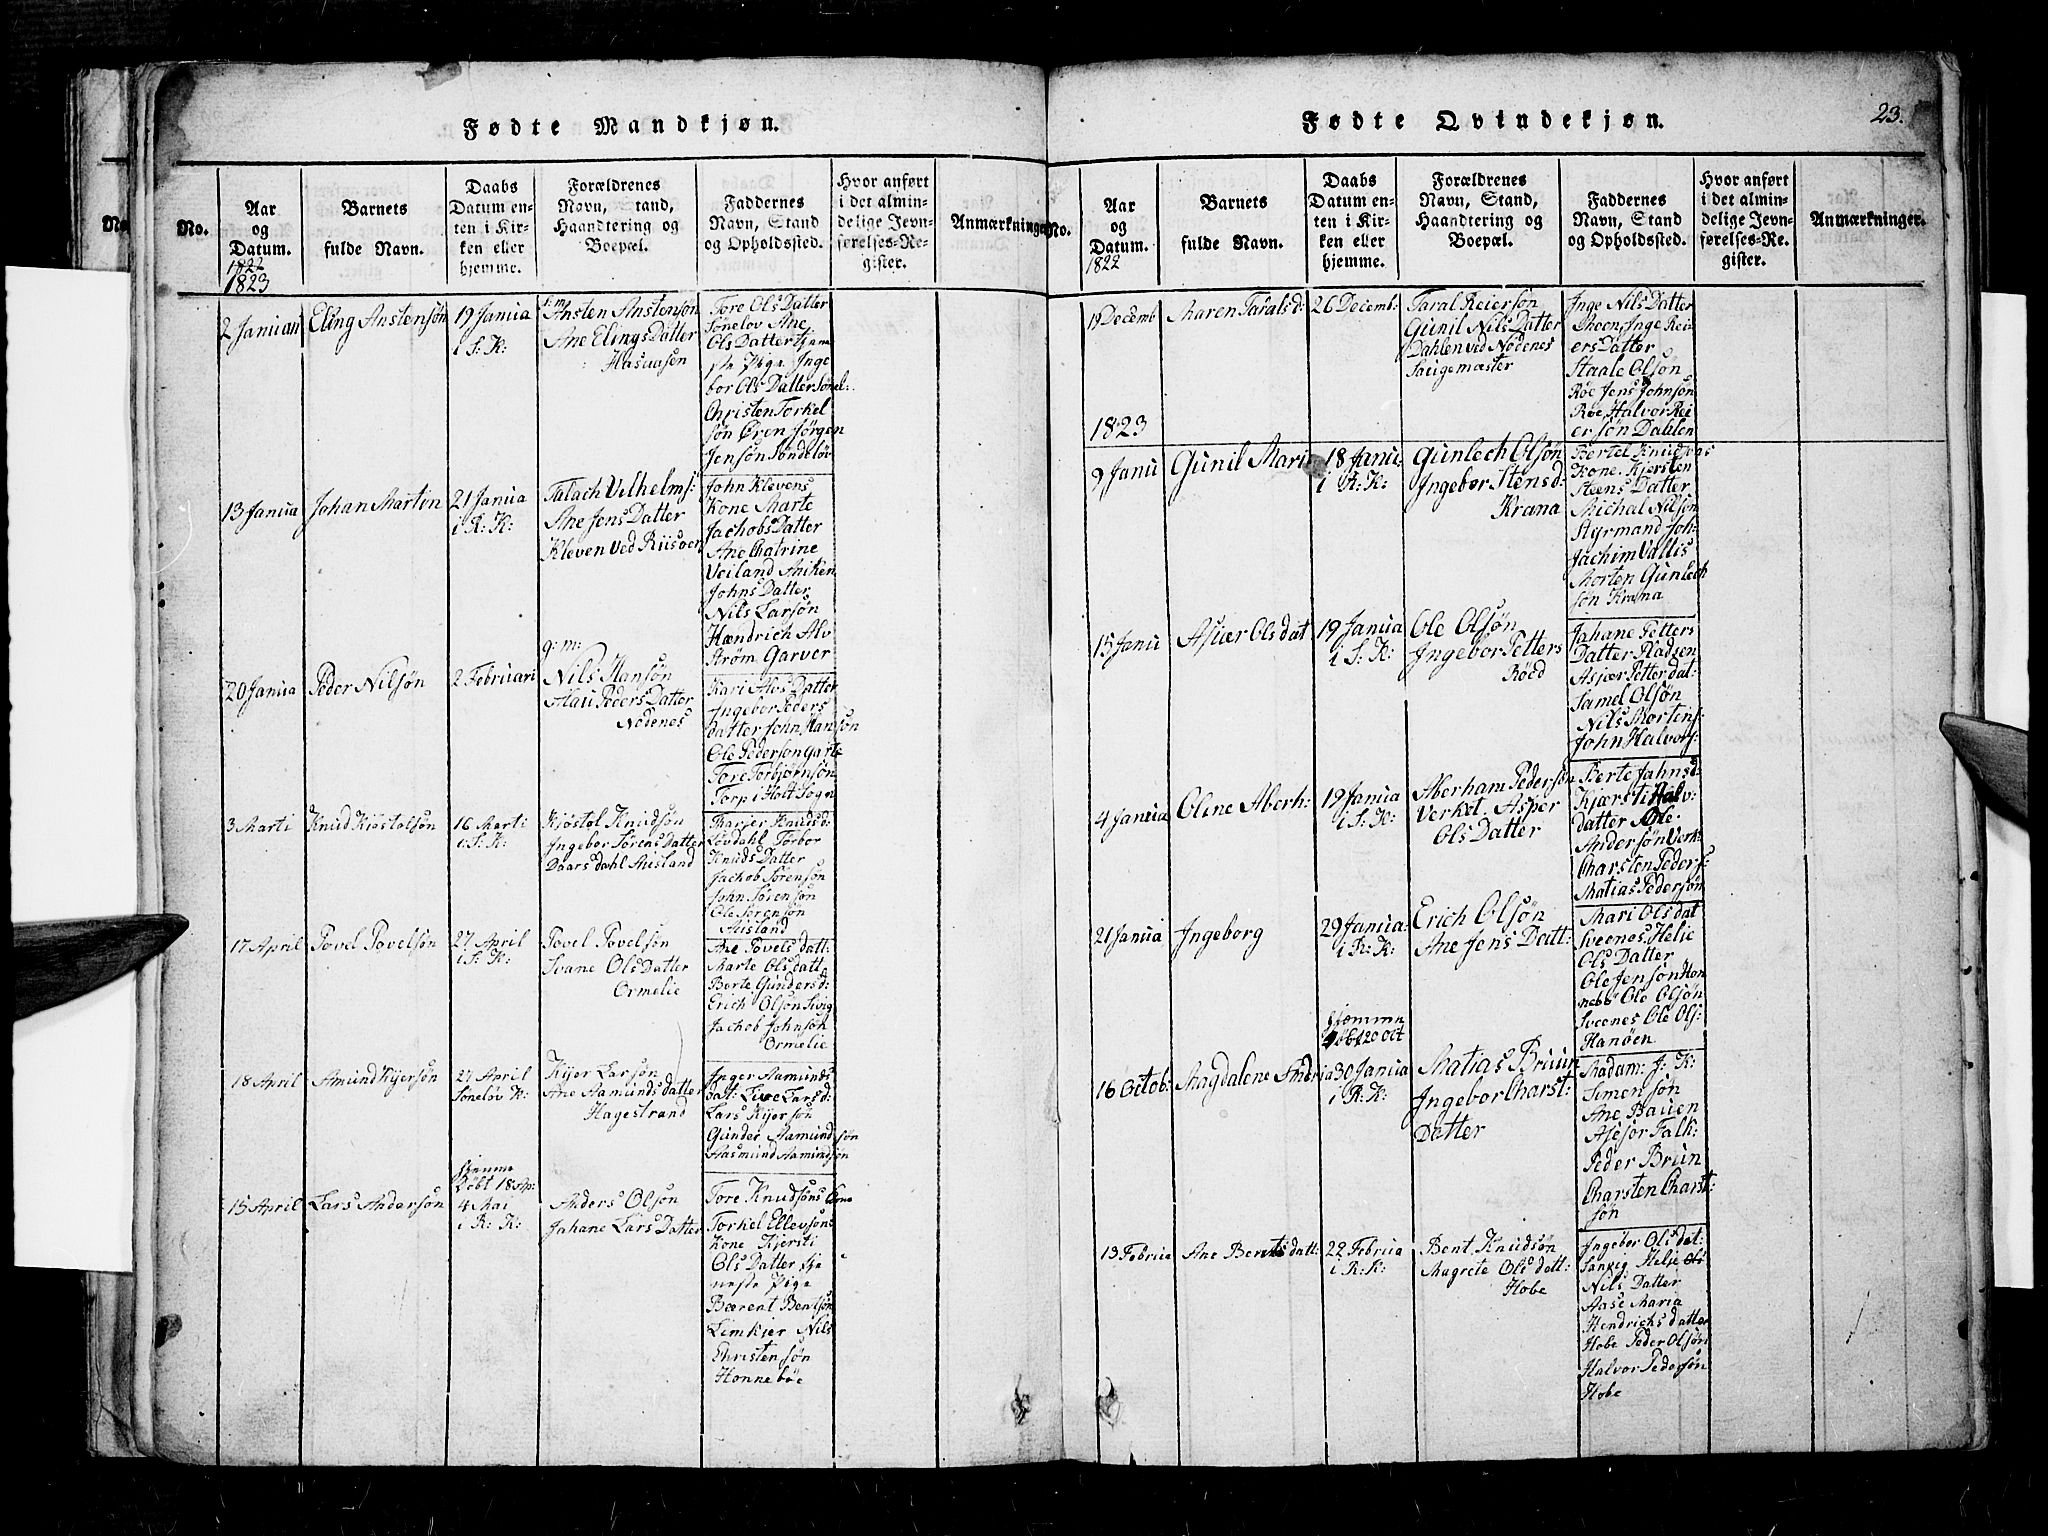 Fødte Mandkjøn.
No.
Aar og Datum.
Barnets fulde Navn.
Daabs Datum enten i Kirken eller hjemme.
Forældrenes Navn, Stand, Haandtering og Boepæl.
Faddernes Navn, Stand og Opholdssted.
Hvor anført i det almindelige Jevnførelses-Register.
Anmærkninger
1822
1823
2 Januari
Eling Anstensøn
19 Janua
i S: K:
Ansten Anstensøn
Ane Elings Datter
Hasaasen
Tore Ols Datter
Sønelov Ane
Ols Datter tjene
ste Pige Inge
bor Ols Datter Sønel:
Christen Torkel
søn Øren Jørgen
Jensøn Søndeløv
13 Janua
Johan Martin
21 Janua
i R: K:
Talach Vilhelms:
Ane Jens Datter
Kleven ved Riisøer
John Klevens
Kone Marte
Jachobs Datter
Ane Chatrine
Veiland Aniken
Johns Datter
Nils Larsøn
Hændrich Alv
Strøm Garver
20 Janua
Peder Nilsøn
2 Februari
g: m:
Nils Hansøn
Mari Peders Datter
Nødenes
Kari Alvs Datter
Ingebor Peders
datter John Hansøn
Ole Pedersøn Garte
Tore Torbjørnsøn
Torp i Holt Sogn
3 Marti
Knud Kiøstolsøn
16 Marti
i S: K:
Kiøstol Knudsøn
Ingebor Sørens Datter
Daarsdahl Ausland
Marjer Knudsd:
Løvdahl Torbor
Knuds Datter
Jachob Sørensøn
John Sørensøn
Ole Sørensøn
Ausland
17 April
Povel Povelsøn
27 April
i S: K:
Povel Povelsøn
Svane Ols Datter
Ormelie
Ane Povels datt:
Marte Ols datt
Berte Gunders d:
Erich Olsøn Sivig
Jachob Johnsøn
Ormelie
18 April
Amund Kyersøn
27 April
Søneløv K:
Kyer Larsøn
Ane Aamunds datter
Hagestrand
Inger Aamunds
dat: Live Larsd:
Lars Kyersøn
Gunder Aamundsøn
Aasmund Aamundsøn
15 April
Lars Andersøn
hiemme
Døbt 18 Ap:
4 Mai
i R: K:
Anders Olsøn
Jahane Lars Datter
Tore Knudsøns Kone
Torkel Ellevsøns
Kone Kjersti
Ols Datter tje
neste Pige
Bærent Bentsøn
Limkjer Nils
Christensøn
Honnebøe
Fødte Qvindekjøn.
23.
No.
Aar og Datum.
Barnets fulde Navn.
Daabs Datum enten i Kirken eller hjemme.
Forældrenes Navn, Stand, Haandtering og Boepæl.
Faddernes Navn, Stand og Opholdsted.
Hvor anført i det almindelige Jevnførelses-Register.
Anmærkninger.
1822
19 Decemb
Maren Tarals d:
26 Decemb:
Taral Reiersøn
Gunil Nils Datter
Dahlen ved Nødenes
Saugemæster
Inge Nils Datter
Moen, Inge Rei
ers Datter
Staale Olsøn
Røe Jens Johnsøn
Røe, Halvor Rei
ersøn Dahlen
1823
9 Janu
Gunil Mari
18 Janu
i R: K:
Gunlech Olsøn
Ingebor Stensd:
Krana
Bertel Knudsøns
Kone. Kjersten
Steens Datter
Michal Nilsøn
Styrmand Joh:
Jachim Vallis
Morten Gunlech
søn Krana
15 Janu
Asjær Ols dat
19 Janua
i S: K:
Ole Olsøn
Ingebor Petters
Røed
Jahane Petters
Datter Madsen
Asjær Petter dat:
Samel Olsøn
Nils Mortens:
John Halvors:
4 Janua
Oline Aberh:
19 Janua
i S: K:
Aberham Pedersøn
Verket. Asper
Ols Datter
Berte Jahnsd:
Kjærsti Halv:
datter Ole
Andersøn Verk:
Charsten Peders:
Matias Pedersøn
21 Janua
Ingeborg
29 Janua:
i R: K:
Erich Olsøn
Ane Jens Datt:
Mari Ols dat
Sveenes, Helie
Ols Datter
Ole Jensøn Hon
nebø Ole Olsøn
Sveenes Ole Ols:
Hanøen
16 Octob:
Magdalene Andrea
hiemme
døbt 20 Oct
30 Janua
i R: K:
Matias Bruun
Ingebor Charst:
Datter
Madam: J. K:
Simensøn
Ane Bauen
Asesor Falk:
Peder Brun
Charsten Charst:
søn
13 Februa
Ane Bents datt:
22 Februa
i R: K:
Bent Knudsøn
Magrete Ols datt:
Hobe
Ingebor Ols dat:
Sanvig Helje
Nils Datter
Aase Maria
Hendrichs datter
Hobe Peder Olsøn
Halvor Pedersøn
Hobe